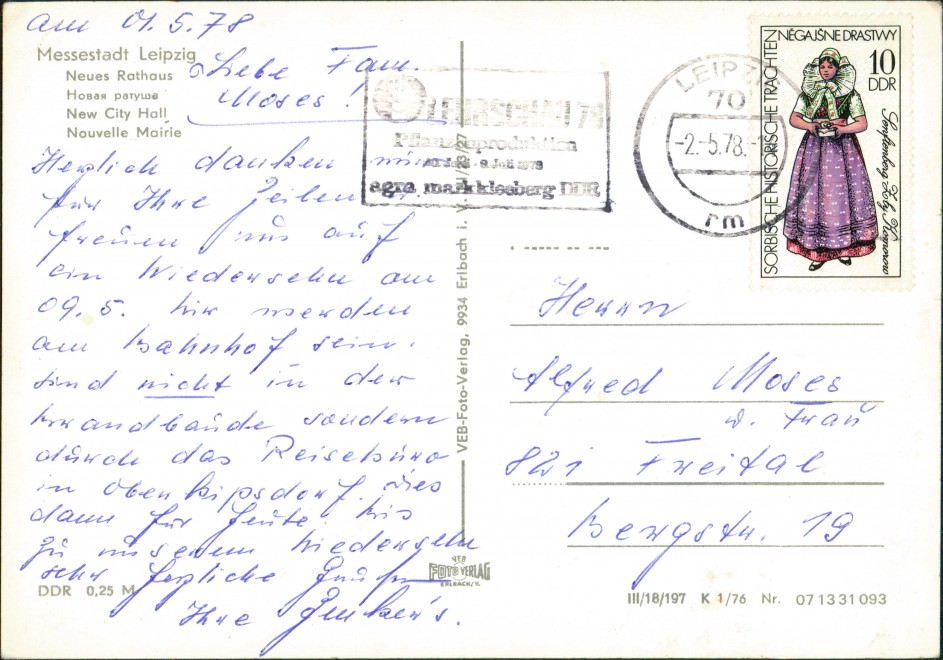 am 01.5.78
Messestadt Leipzig
Neues Rathaus
Новая ратуша
New City Hall
Nouvelle Mairie
Liebe Fam.
Moses!
Herzlich danken wir
für Ihre Zeilen
freuen uns auf
ein Wiedersehn am
09.5. Wir werden
am Bahnhof sein.
Sind nicht in der
sondern
durch das Reisebüro
in Oberkipsdorf. Dies
dann für heute. Bis
zu unserem Wiedersehn
sehr herzliche Grüße
Ihre
DDR 0,25 M
VEB-Foto-Verlag, 9934 Erlbach i. V.
VEB
FOTO VERLAG
ERLBACH/V.
LEHRSCHAU 78
Pflanzenproduktion
9. Juli 1978
agra markkleeberg DDR
LEIPZIG
70
-2.-5.78.-
rm
SORBISCHE HISTORISCHE TRACHTEN
NĚGAJŠNE DRASTWY
10
DDR
Senftenberg Zły Komorow
Herrn
Alfred Moses
u. Frau
821 Freital
Bergstr. 19
III/18/197 K 1/76 Nr. 071331093